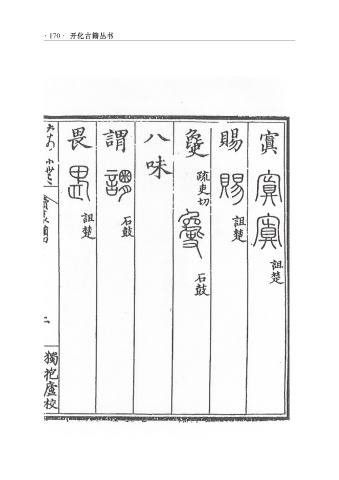 · 170 · 开化古籍丛书
寘 詛楚
賜 賜 詛楚
疏吏切 石鼓
八味
謂 謂 石鼓
畏 畏 詛楚
二
獨抱廬校